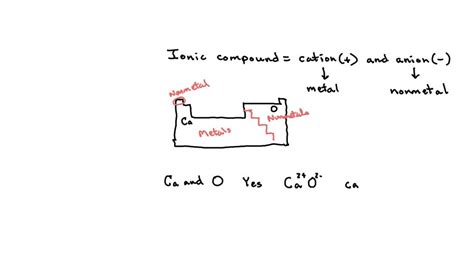 Ionic compound = cation(+) and anion(-)
↓ ↓
metal nonmetal
Nonmetal
O
Ca
Metals
Nonmetals
Ca and O Yes Ca²⁺O²⁻ Ca